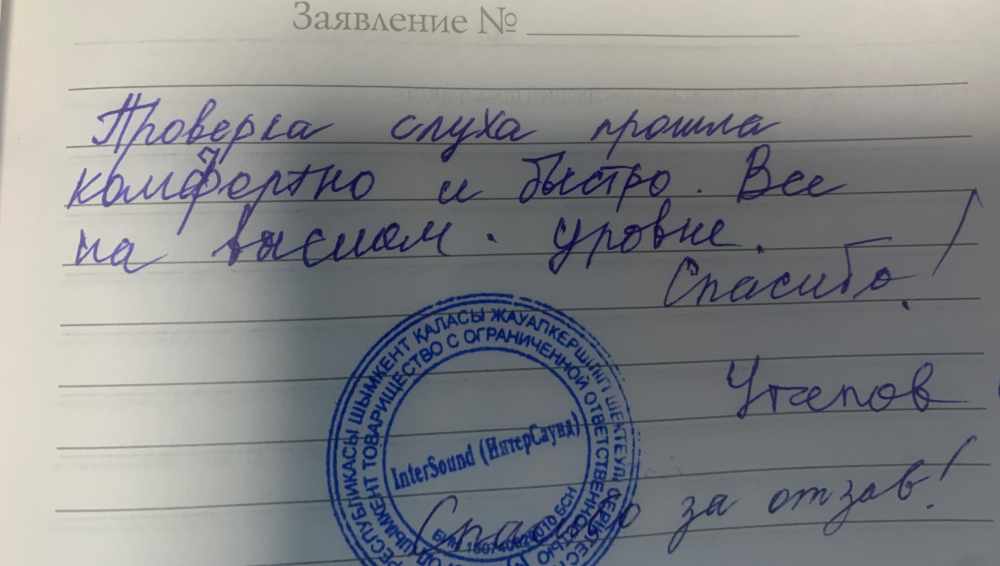 Заявление №
Проверка слуха прошла
комфортно и быстро. Все
на высшом. уровне.
Спасибо!
Утепов
InterSound (ИнтерСаунд)
РЕСПУБЛИКАСЫ ШЫМКЕНТ ҚАЛАСЫ ЖАУАПКЕРШІЛІГІ ШЕКТЕУЛІ СЕРІКТЕСТ
ШЫМКЕНТ ТОВАРИЩЕСТВО С ОГРАНИЧЕННОЙ ОТВЕТСТВЕННОСТЬЮ
БСН
Спасибо за отзав!